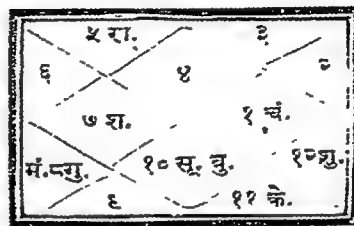 ५ रा. ३
६ ४ २
७ श. १ चं.
मं. ८ गु. १० सू. बु. १२ शु.
९ ११ के.